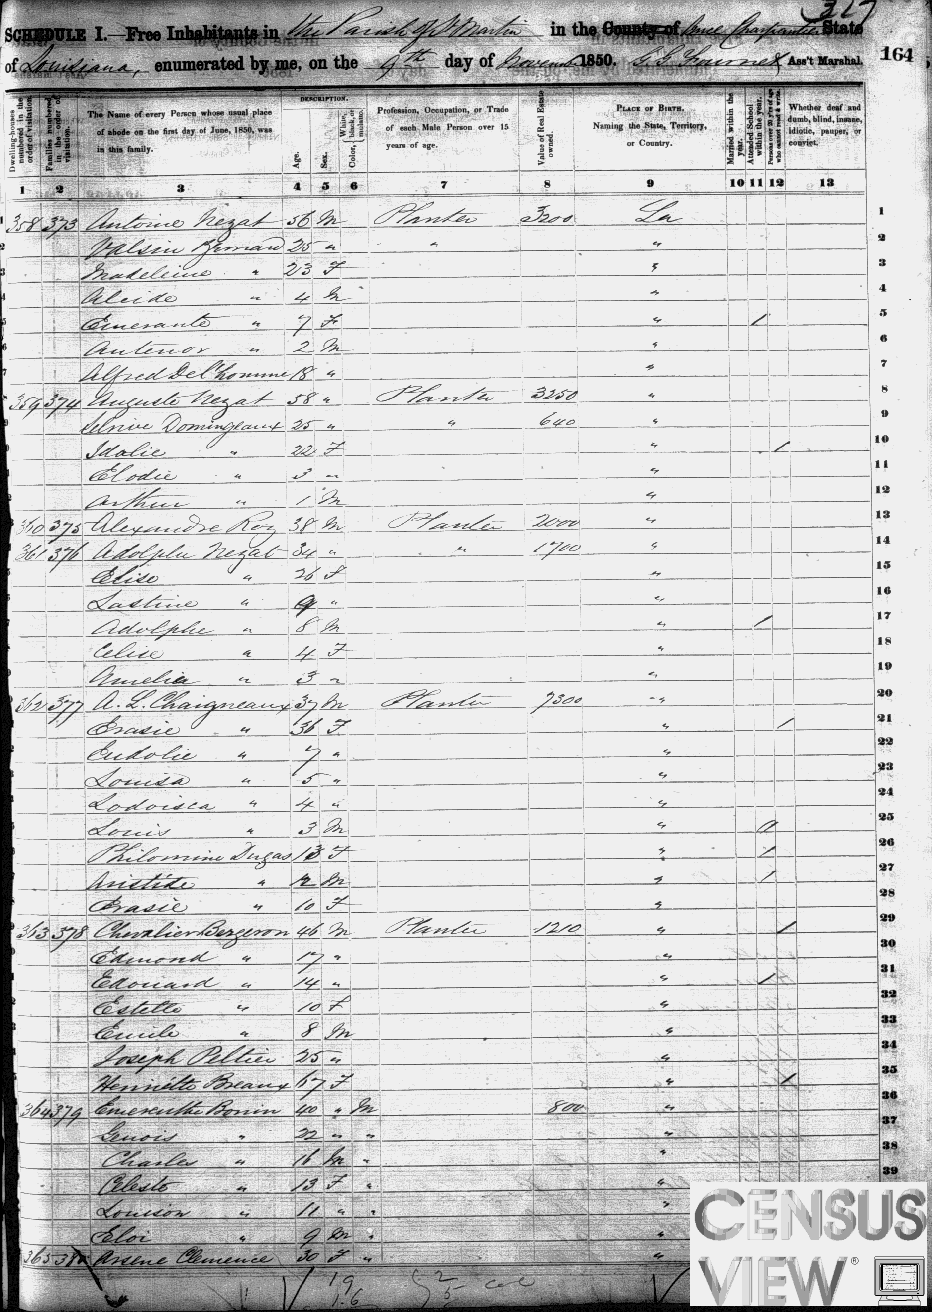 327
SCHEDULE I.—Free Inhabitants in the Parish of St Martin in the County of State
of Louisiana, enumerated by me, on the 9th day of November 1850. Ass't Marshal. 164
Dwelling-houses numbered in the order of visitation.
Families numbered in the order of visitation.
The Name of every Person whose usual place of abode on the first day of June, 1850, was in this family.
DESCRIPTION.
Age.
Sex.
Color, White, black, or mulatto.
Profession, Occupation, or Trade of each Male Person over 15 years of age.
Value of Real Estate owned.
PLACE OF BIRTH. Naming the State, Territory, or Country.
Married within the year.
Attended School within the year.
Persons over 20 y'rs of age who cannot read & write.
Whether deaf and dumb, blind, insane, idiotic, pauper, or convict.
1 2 3 4 5 6 7 8 9 10 11 12 13
1 358 373 Antoine Nezat 56 M Planter 3200 La 1
2 25 " " " 2
3 Madeleine " 23 F " 3
4 Alcide " 4 M " 4
5 Emerante " 7 F " / 5
6 Antenor " 2 M " 6
7 Alfred Del'homme 18 " " 7
359 374 Auguste Nezat 58 " Planter 3250 " 8
Domingeaux 25 " " 640 " 9
Idalie " 22 F " / 10
Elodie " 3 " " 11
Arthur " 1 M " 12
360 375 Alexandre Roy 38 M Planter 2000 " 13
361 376 Adolphe Nezat 34 " " 1700 " 14
Elise " 26 F " 15
Lastine " 9 " " 16
Adolphe " 8 M " / 17
Celise " 4 F " 18
Amelia " 3 " " 19
362 377 A. L. Chaigneaux 37 M Planter 7300 " 20
Erasie " 36 F " / 21
Eudolie " 7 " " 22
Louisa " 5 " " 23
Lodoisca " 4 " " 24
Louis " 3 M " 25
Philomine Dugas 13 F " / 26
Aristide " 12 M " / 27
Erasie " 10 F " 28
363 378 Chevalier Bergeron 46 M Planter 1210 " / 29
Edmond " 17 " " 30
Edouard " 14 " " / 31
Estelle " 10 F " 32
Emile " 8 M " 33
Joseph Peltier 25 " " 34
Henriette Breaux 67 F " / 35
364 379 Emerenthe Bonin 40 " M 800 " 36
" 22 " " " 37
Charles " 16 M " " 38
Celeste " 13 F " " 39
Louison " 11 " " "
Eloi " 9 M " "
365 380 Arsene Clemence 30 F " "
19
16
CENSUS
VIEW®